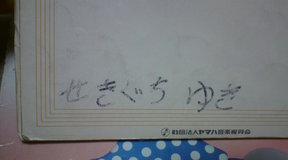 せきぐち ゆき
財団法人ヤマハ音楽振興会